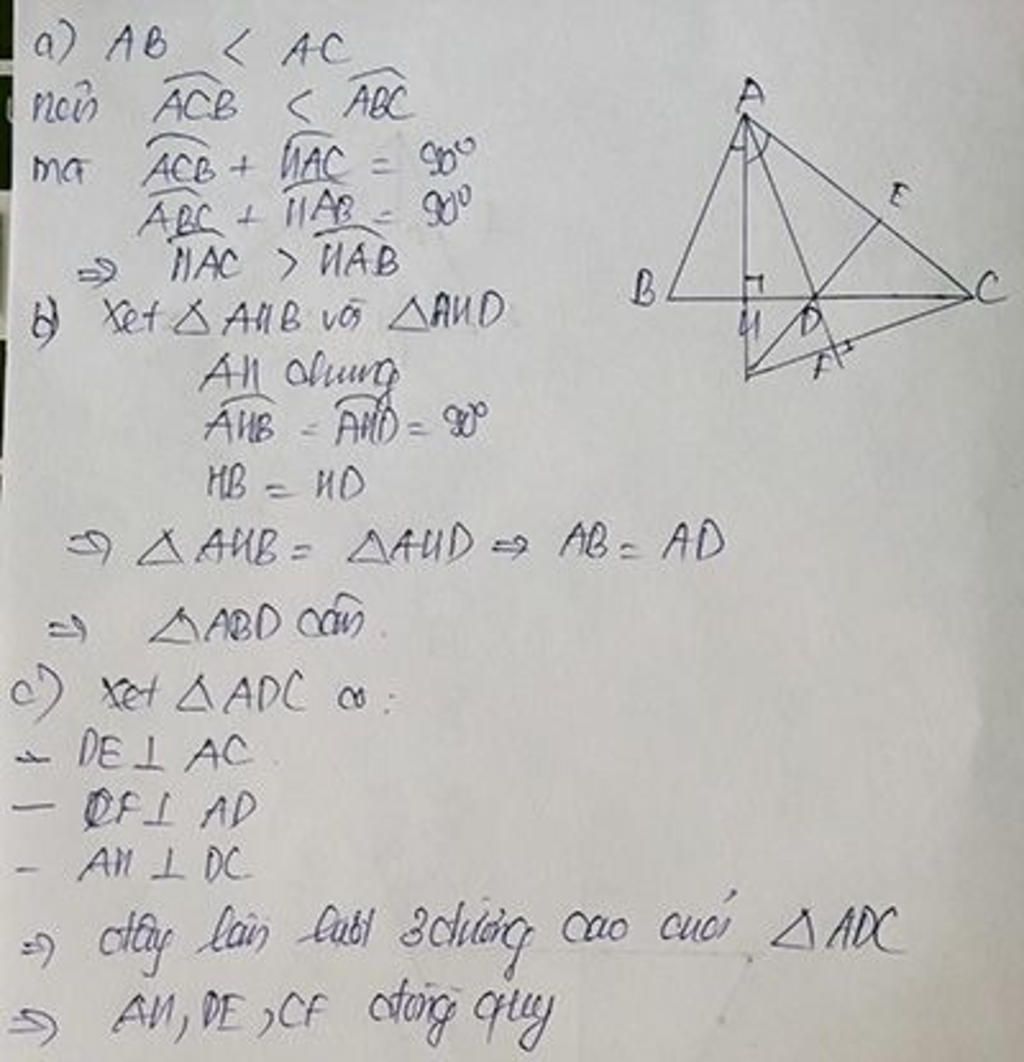 a) AB < AC
nên ACB < ABC
mà ACB + HAC = 90°
ABC + HAB = 90°
⇒ HAC > HAB
b) Xét △ AHB với △AHD
AH chung
AHB = AHD = 90°
HB = HD
⇒ △ AHB = △AHD ⇒ AB = AD
⇒ △ABD cân.
c) Xét △ ADC có :
- DE ⊥ AC.
- CF ⊥ AD
- AH ⊥ DC
⇒ đây lần lượt 3 đường cao của △ ADC
⇒ AH, DE, CF đồng quy
A
E
B
H
D
C
F